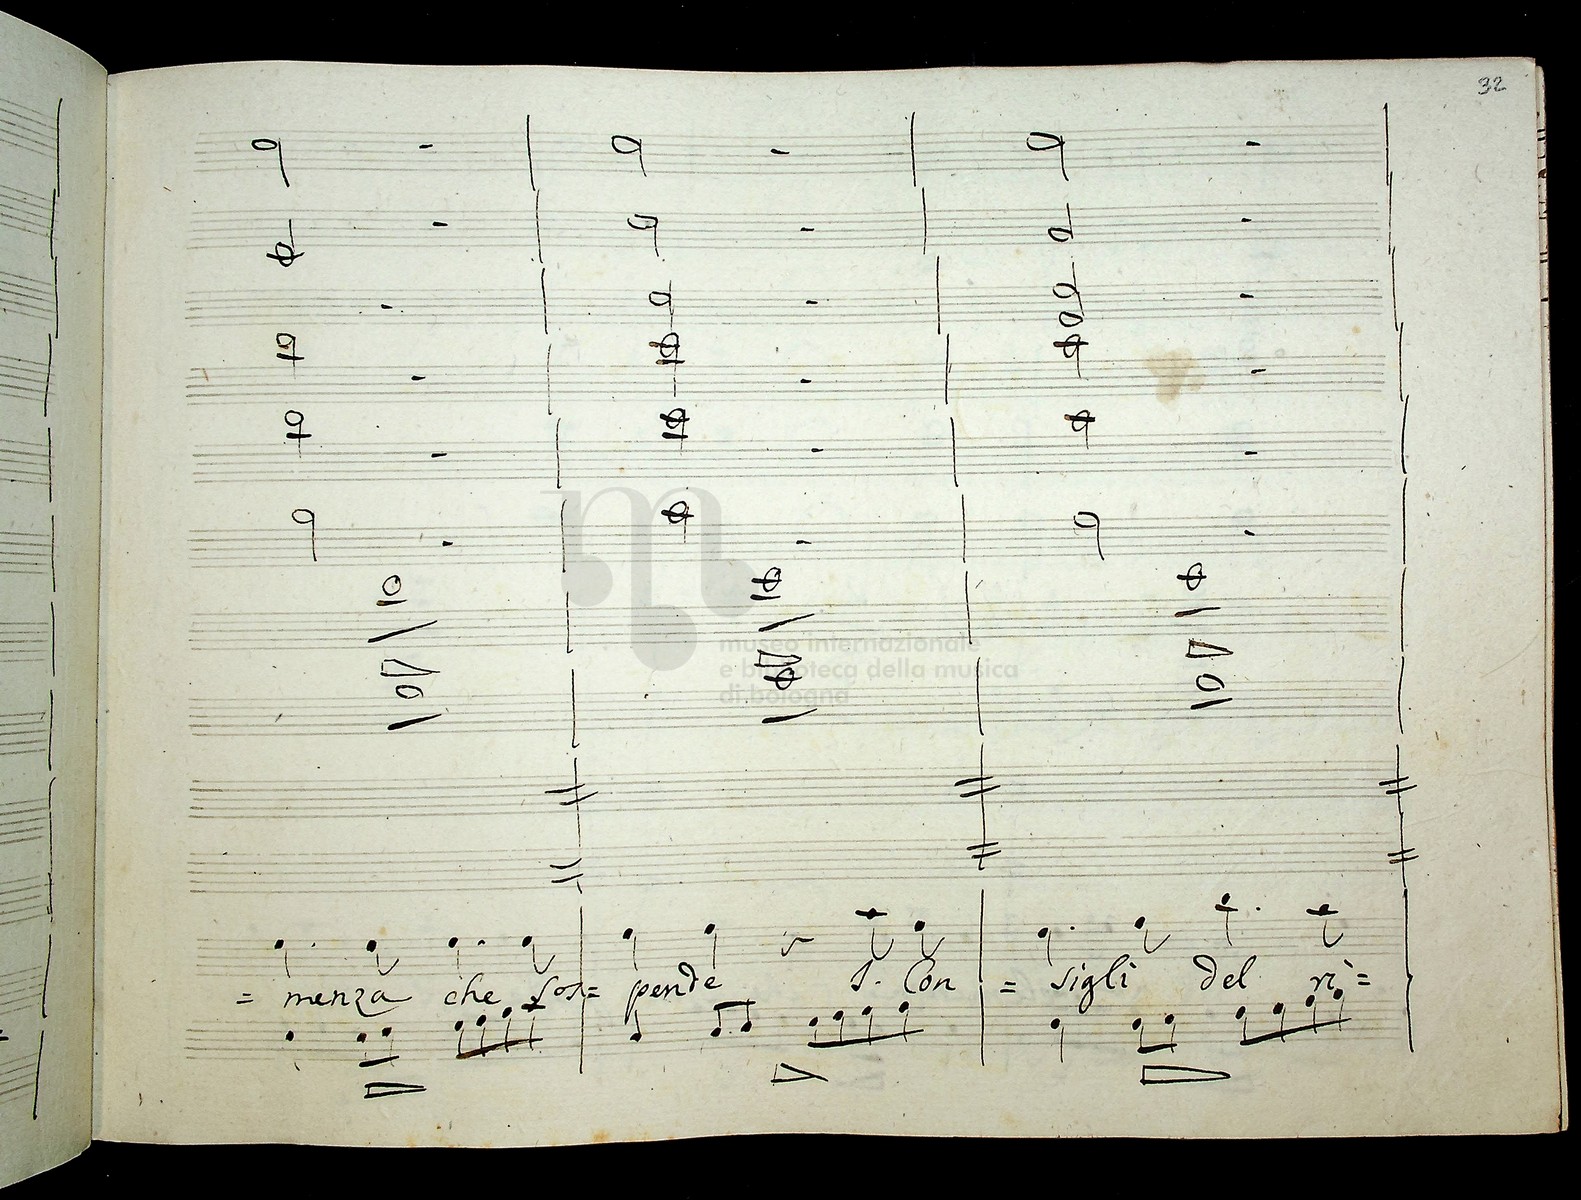 32
museo internazionale
e biblioteca della musica
di bologna
= menza che sos= pende I. Con = sigli del ri=